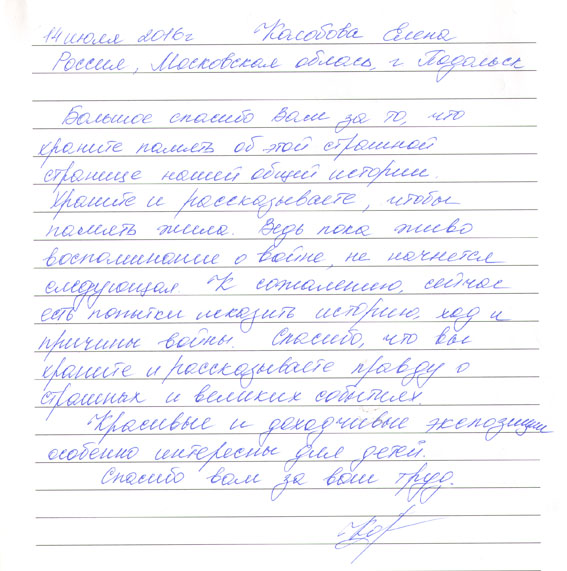 14 июля 2016г Колобова Елена
Россия, Московская облась, г Подольск
Большое спасибо Вам за то, что
храните память об этой страшной
странице нашей общей истории.
Храните и рассказываете, чтобы
память жила. Ведь пока живо
воспоминание о войне, не начнется
следующая. К сожалению, сейчас
есть попытки исказить историю, ход и
причины войны. Спасибо, что вы
храните и рассказываете правду о
страшных и великих событиях.
Красивые и доходчивые экспозиции
особенно интересны для детей.
Спасибо вам за ваш труд.